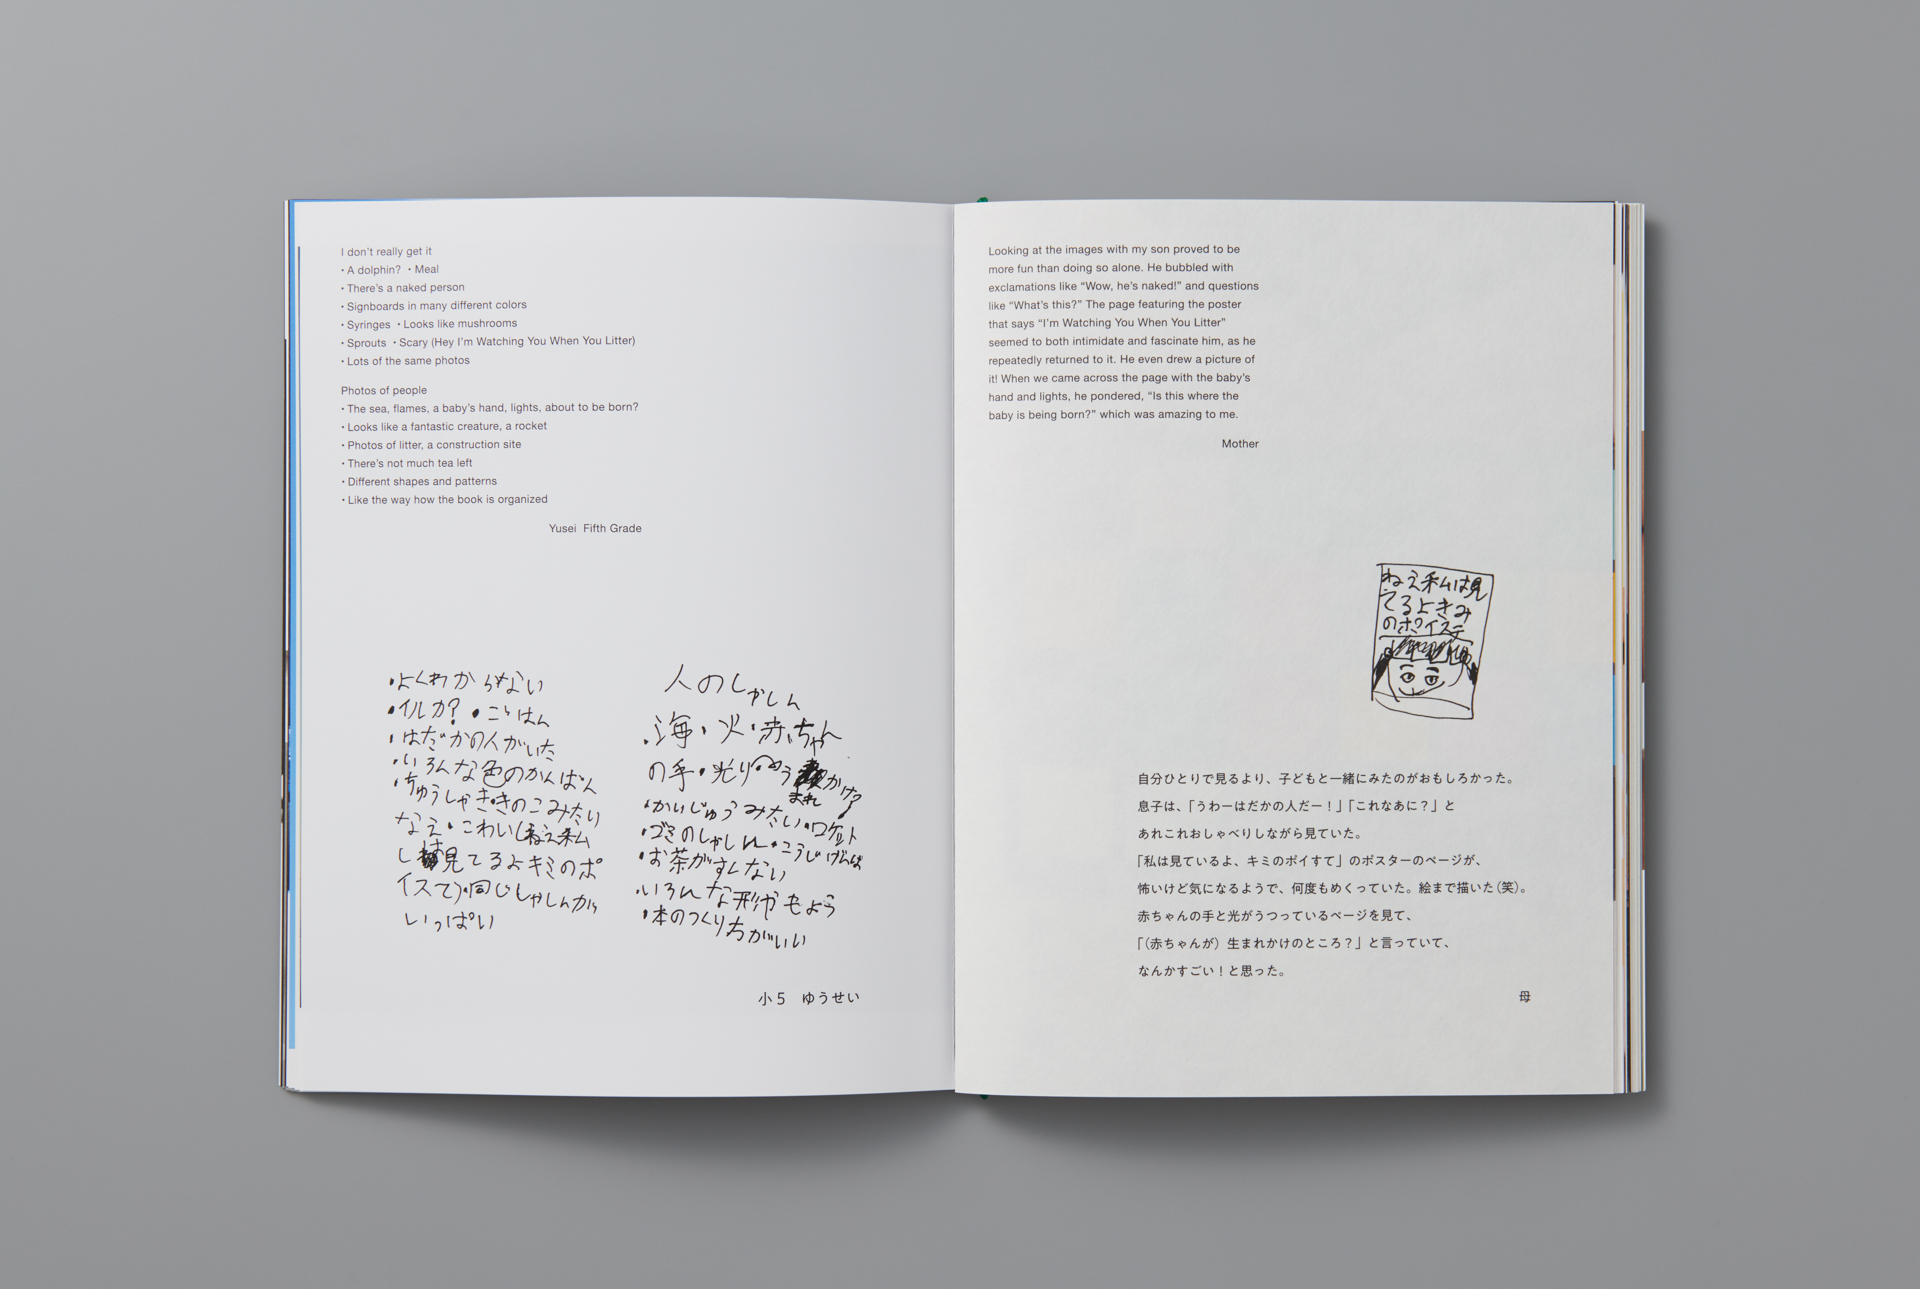 I don't really get it
・A dolphin? ・Meal
・There's a naked person
・Signboards in many different colors
・Syringes ・Looks like mushrooms
・Sprouts ・Scary (Hey I'm Watching You When You Litter)
・Lots of the same photos
Photos of people
・The sea, flames, a baby's hand, lights, about to be born?
・Looks like a fantastic creature, a rocket
・Photos of litter, a construction site
・There's not much tea left
・Different shapes and patterns
・Like the way how the book is organized
Yusei Fifth Grade
・よくわからない
・イルカ？・ごはん
・はだかの人がいた
・いろんな色のかんばん
・ちゅうしゃき・きのこみたい
なえ・こわい(ねえ私
は見てるよキミのポ
イステ)・同じしゃしんが
いっぱい
人のしゃしん
・海・火・赤ちゃん
の手・光り・うまれかけ？
・かいじゅうみたい・ロケット
・ゴミのしゃしん・こうじげんば
・お茶がすくない
・いろんな形やもよう
・本のつくりかたがいい
小5 ゆうせい
Looking at the images with my son proved to be
more fun than doing so alone. He bubbled with
exclamations like “Wow, he's naked!” and questions
like “What's this?” The page featuring the poster
that says “I'm Watching You When You Litter”
seemed to both intimidate and fascinate him, as he
repeatedly returned to it. He even drew a picture of
it! When we came across the page with the baby's
hand and lights, he pondered, “Is this where the
baby is being born?” which was amazing to me.
Mother
ねえ私は見
てるよきみ
のポイステ
自分ひとりで見るより、子どもと一緒にみたのがおもしろかった。
息子は、「うわーはだかの人だー！」「これなあに？」と
あれこれおしゃべりしながら見ていた。
「私は見ているよ、キミのポイすて」のポスターのページが、
怖いけど気になるようで、何度もめくっていた。絵まで描いた（笑）。
赤ちゃんの手と光がうつっているページを見て、
「（赤ちゃんが）生まれかけのところ？」と言っていて、
なんかすごい！と思った。
母